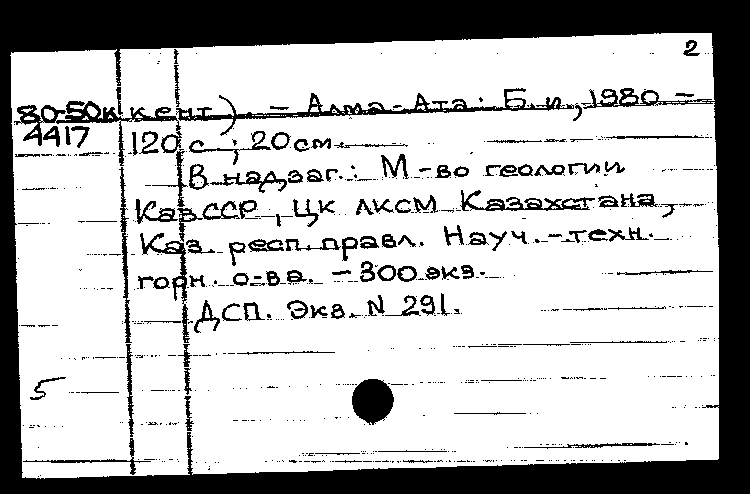 2
80-50к кент). - Алма-Ата: Б. и, 1980 -
4417 120 с ; 20 см.
В надзаг.: М-во геологии
КазССР, ЦК ЛКСМ Казахстана,
Каз. респ. правл. Науч.-техн.
горн. о-ва. - 300 экз.
ДСП. Экз. N 291.
5